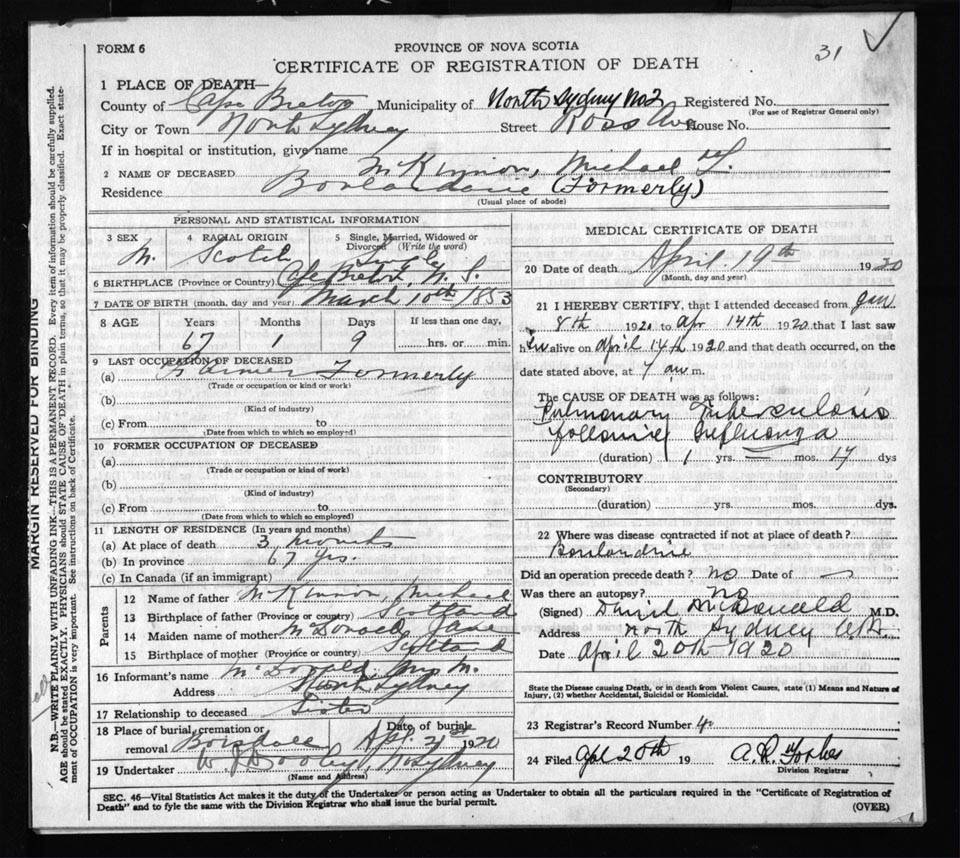 FORM 6
PROVINCE OF NOVA SCOTIA
31
CERTIFICATE OF REGISTRATION OF DEATH
1 PLACE OF DEATH—
County of Cape Breton Municipality of North Sydney No2 Registered No.
(For use of Registrar General only)
City or Town North Sydney Street Ross Ave House No.
If in hospital or institution, give name
2 NAME OF DECEASED McKinnon, Michael
Residence Boulardarie (Formerly)
(Usual place of abode)
PERSONAL AND STATISTICAL INFORMATION
3 SEX M. 4 RACIAL ORIGIN Scotch 5 Single, Married, Widowed or Divorced (Write the word) Single
6 BIRTHPLACE (Province or Country) Cape Breton, N. S.
7 DATE OF BIRTH (month, day and year) March 10th 1853
8 AGE Years Months Days If less than one day,
67 1 9 hrs. or min.
9 LAST OCCUPATION OF DECEASED
(a) Farmer Formerly
(Trade or occupation or kind or work)
(b)
(Kind of industry)
(c) From to
(Date from which to which so employed)
10 FORMER OCCUPATION OF DECEASED
(a)
(Trade or occupation or kind of work)
(b)
(Kind of industry)
(c) From to
(Date from which to which so employed)
11 LENGTH OF RESIDENCE (In years and months)
(a) At place of death 3 months
(b) In province 67 yrs.
(c) In Canada (if an immigrant)
Parents
12 Name of father McKinnon, Michael
13 Birthplace of father (Province or country) Scotland
14 Maiden name of mother McDonald, Jane
15 Birthplace of mother (Province or country) Scotland
16 Informant's name McDonald, Mrs M.
Address North Sydney
17 Relationship to deceased Sister
18 Place of burial, cremation or removal Boisdale Date of burial Apr. 21st 1920
19 Undertaker W J Dooley N. Sydney
(Name and Address)
MEDICAL CERTIFICATE OF DEATH
20 Date of death April 19th 1920
(Month, day and year)
21 I HEREBY CERTIFY, that I attended deceased from Jan
8th 1920 to Apr 14th 1920 that I last saw
him alive on April 14th 1920 and that death occurred, on the
date stated above, at 7 am m.
The CAUSE OF DEATH was as follows:
Pulmonary Tuberculosis
following Influenza
(duration) 1 yrs. — mos. 17 dys
CONTRIBUTORY
(Secondary)
(duration) yrs. mos. dys.
22 Where was disease contracted if not at place of death?
Boulardrie
Did an operation precede death? no Date of —
Was there an autopsy? no
(Signed) Daniel McDonald M.D.
Address North Sydney
Date April 20th 1920
State the Disease causing Death, or in death from Violent Causes, state (1) Means and Nature of
Injury, (2) whether Accidental, Suicidal or Homicidal.
23 Registrar's Record Number 40
24 Filed Apl 20th 19 A. R. Forbes
Division Registrar
SEC. 46—Vital Statistics Act makes it the duty of the Undertaker or person acting as Undertaker to obtain all the particulars required in the "Certificate of Registration of
Death" and to fyle the same with the Division Registrar who shall issue the burial permit.
(OVER)
MARGIN RESERVED FOR BINDING
N.B.—WRITE PLAINLY WITH UNFADING INK—THIS IS A PERMANENT RECORD. Every item of information should be carefully supplied.
AGE should be stated EXACTLY. PHYSICIANS should STATE CAUSE OF DEATH in plain terms, so that it may be properly classified. Exact statement of OCCUPATION is very important. See instructions on back of Certificate.